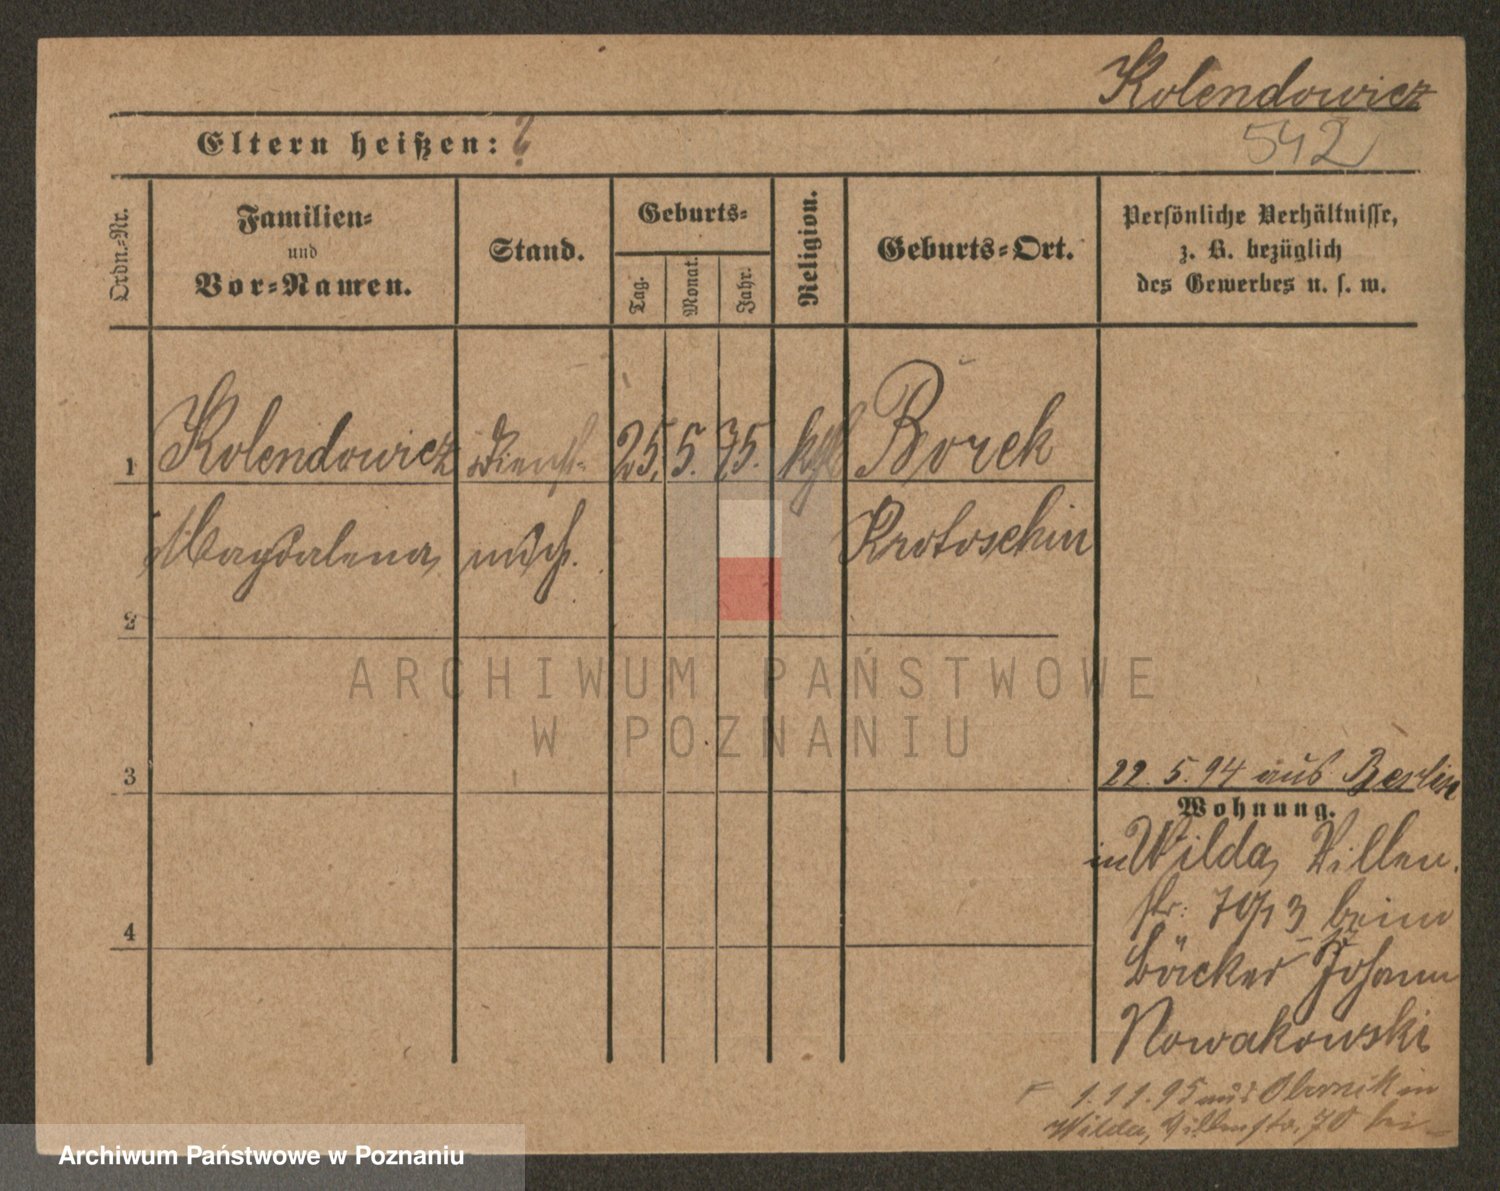 Kolendowicz
542
Eltern heißen: ?
Ordn.-Nr.
Familien-
und
Vor-Namen.
Stand.
Geburts-
Tag.
Monat.
Jahr.
Religion.
Geburts-Ort.
Persönliche Verhältnisse,
z. B. bezüglich
des Gewerbes u. s. w.
1 Kolendowicz Dienst- 25. 5. 75. kath Borek
Magdalena mdch. Krotoschin
2
3
4
ARCHIWUM PAŃSTWOWE
W POZNANIU
22. 5. 94 aus Berlin
Wohnung.
in Wilda, Villen.
str. 70/13 beim
Bäcker Johann
Nowakowski
1. 11. 95 aus Obornik in
Wilda, Villenstr. 70 bei
Archiwum Państwowe w Poznaniu